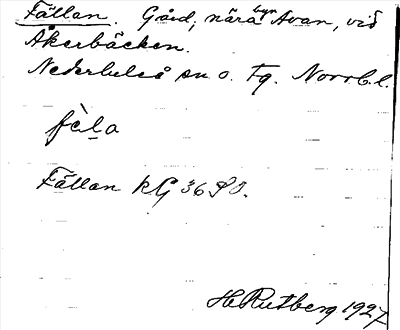 Fällan. Gård, nära byn Avan, vid
Åkerbäcken.
Nederluleå sn o. Tg. Norrb.l.
fèl̲a
Fällan kG 36 SO.
H Rutberg 1927